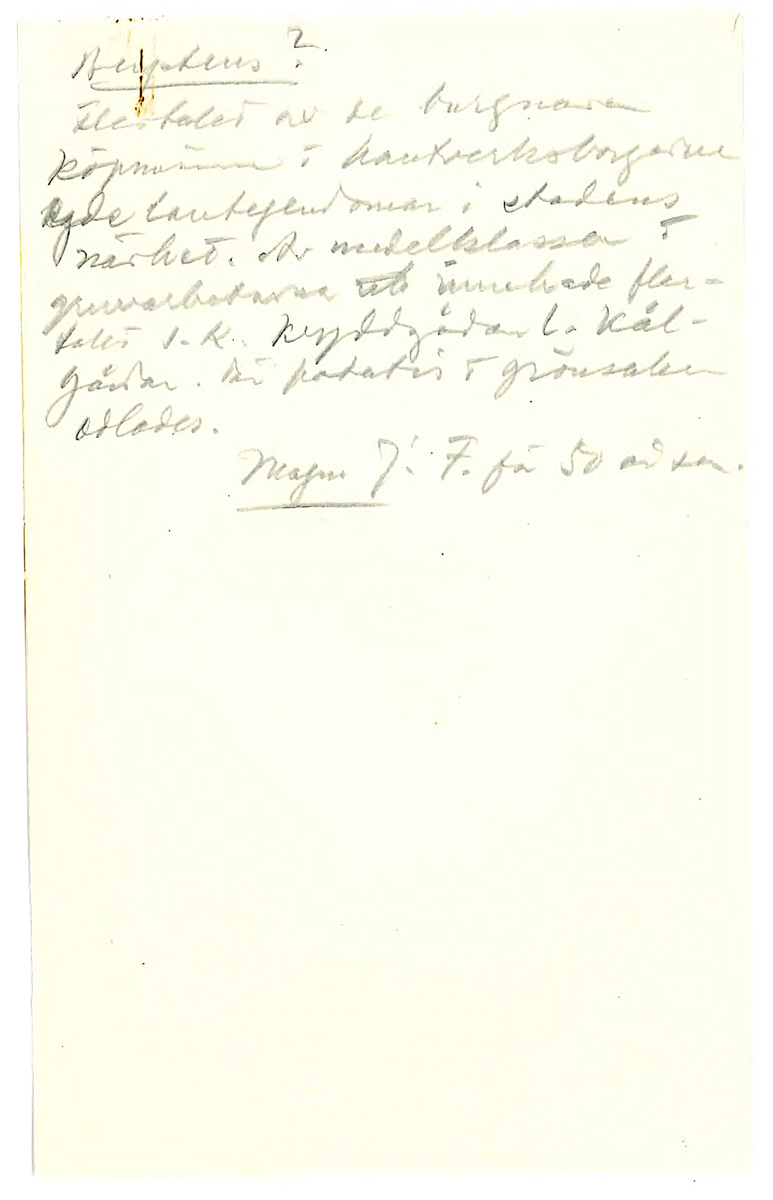 Bergstens?
Flertalet av de burgnare
köpmännen o hantverksborgarna
egde lantegendomar i stadens
närhet. Av medelklassen o
gruvarbetarna innehade fler-
talet s.k. kryddgårdar l. kål-
gårdar. där potatis o grönsaker
odlades.
Magn J. F. för 50 år sen.